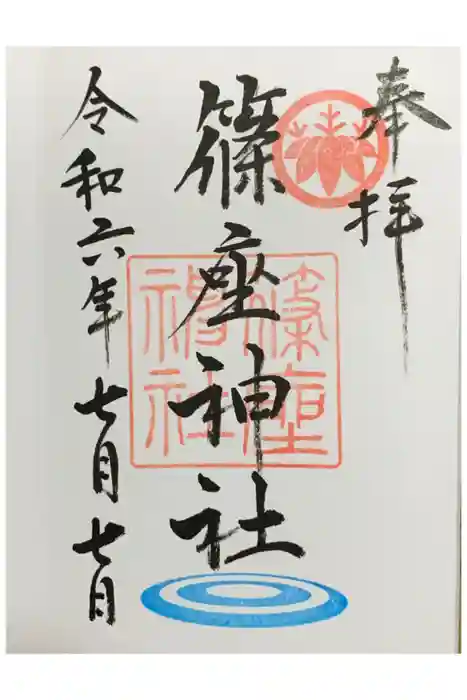 奉拝
篠座神社
篠座神社
令和六年七月七日